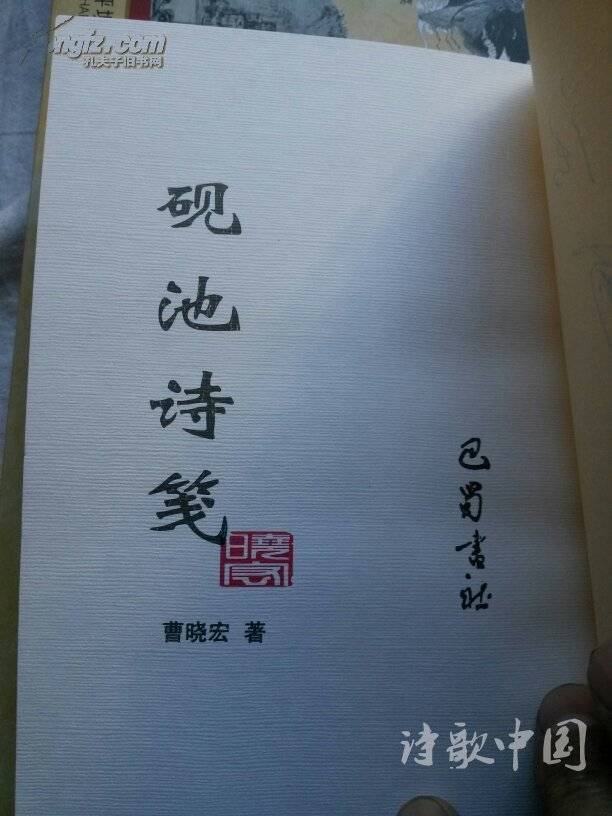 kongfz.com
孔夫子旧书网
砚池诗笺
晓宏
曹晓宏 著
巴蜀书社
诗歌中国